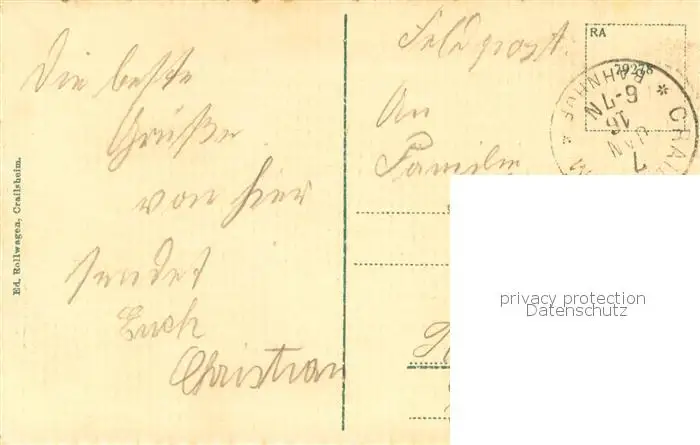 Die beste
Grüße
von hier
sendet
Euch
Christian
Ed. Rollwagen, Crailsheim.
Feldpost.
An
Familie
RA
79278
CRAIL
BAHNHOF
6-7 N
16
JAN
7
privacy protection
Datenschutz